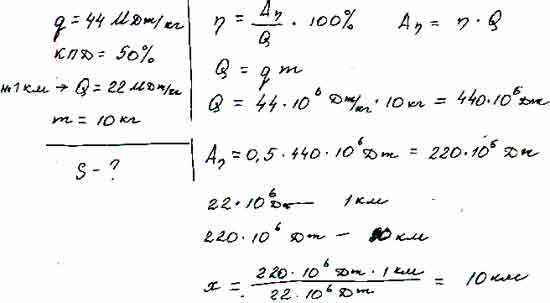 q = 44 МДж/кг
КПД = 50%
на 1 км → Q = 22 МДж/кг
m = 10 кг
S - ?
η = Aп/Q · 100%   Aп = η · Q
Q = q m
Q = 44 · 10⁶ Дж/кг · 10 кг = 440 · 10⁶ Дж
Aп = 0,5 · 440 · 10⁶ Дж = 220 · 10⁶ Дж
22 · 10⁶ Дж — 1 км
220 · 10⁶ Дж — км
x = 220 · 10⁶ Дж · 1 км / 22 · 10⁶ Дж = 10 км